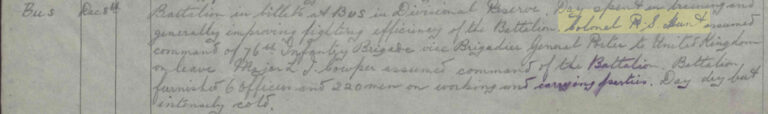 Bus Dec. 8th Battalion in billets at Bus in Divisional Reserve. Day spent in training and
generally improving fighting efficiency of the Battalion. Colonel R. S. Hunt assumed
command of 76th Infantry Brigade vice Brigadier General Porter to United Kingdom
on leave. Major L. J. Cowper assumed command of the Battalion. Battalion
furnished 6 Officers and 220 men on working and carrying parties. Day dry but
intensely cold.